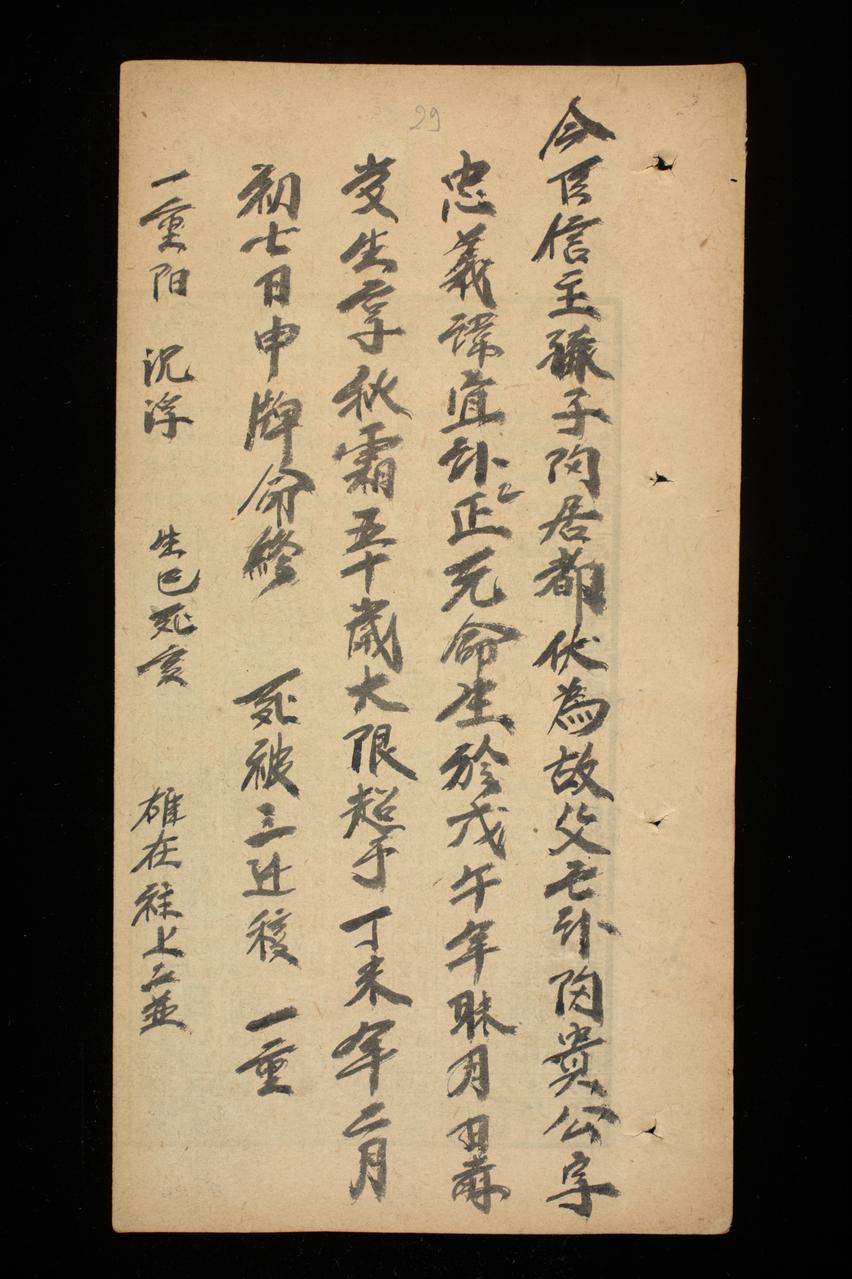 29
今臣信主孫子陶居都伏為故父亡卦陶貴公字
忠義諱宜卦正元命生於戊午年昧月日壽
受生享秋霜五十歲大限超于丁未年二月
初七日申牌命終 死被三迁移 一重
一重阳 沉浮 生巳死亥 雄在柱上並